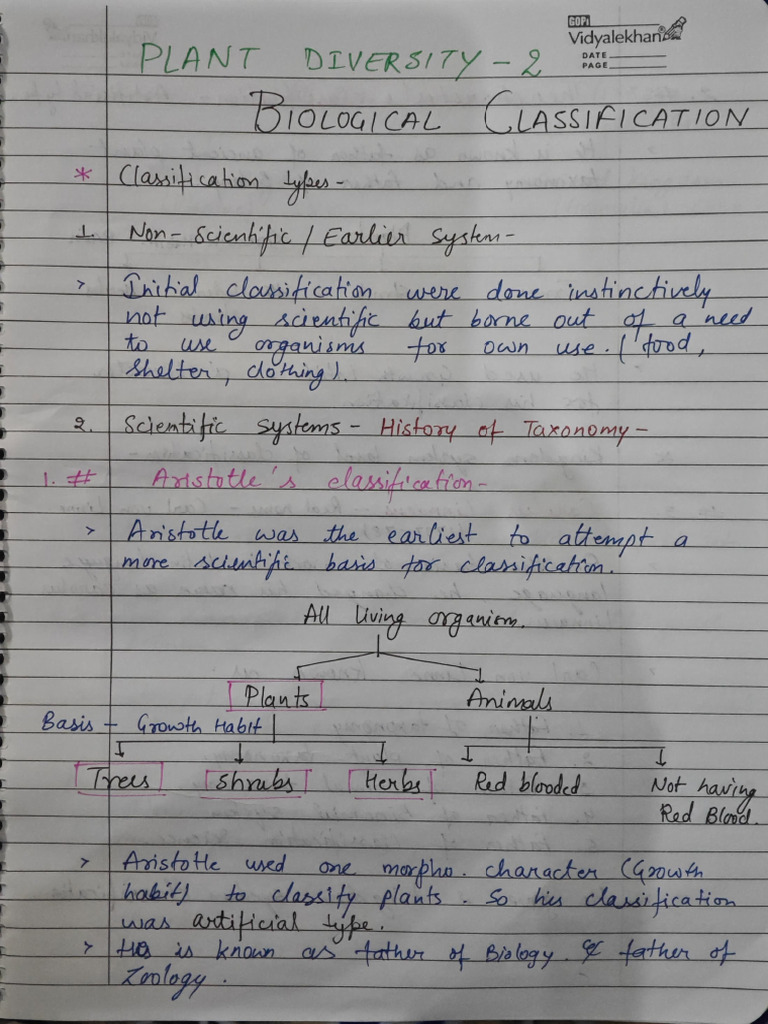 GOPI
Vidyalekhan
DATE
PAGE
PLANT DIVERSITY - 2
BIOLOGICAL CLASSIFICATION
* Classification types-
1. Non-Scientific / Earlier System-
> Initial classification were done instinctively
not using scientific but borne out of a need
to use organisms for own use. ( food,
Shelter, clothing).
2. Scientific Systems - History of Taxonomy -
1. # Aristotle's classification-
> Aristotle was the earliest to attempt a
more scientific basis for classification.
All living organism.
Plants Animals
Basis - Growth Habit
Trees Shrubs Herbs Red blooded Not having
Red Blood.
> Aristotle used one morpho. character (Growth
habit) to classify plants. So his classification
was artificial type.
> He is known as father of Biology. & father of
Zoology.